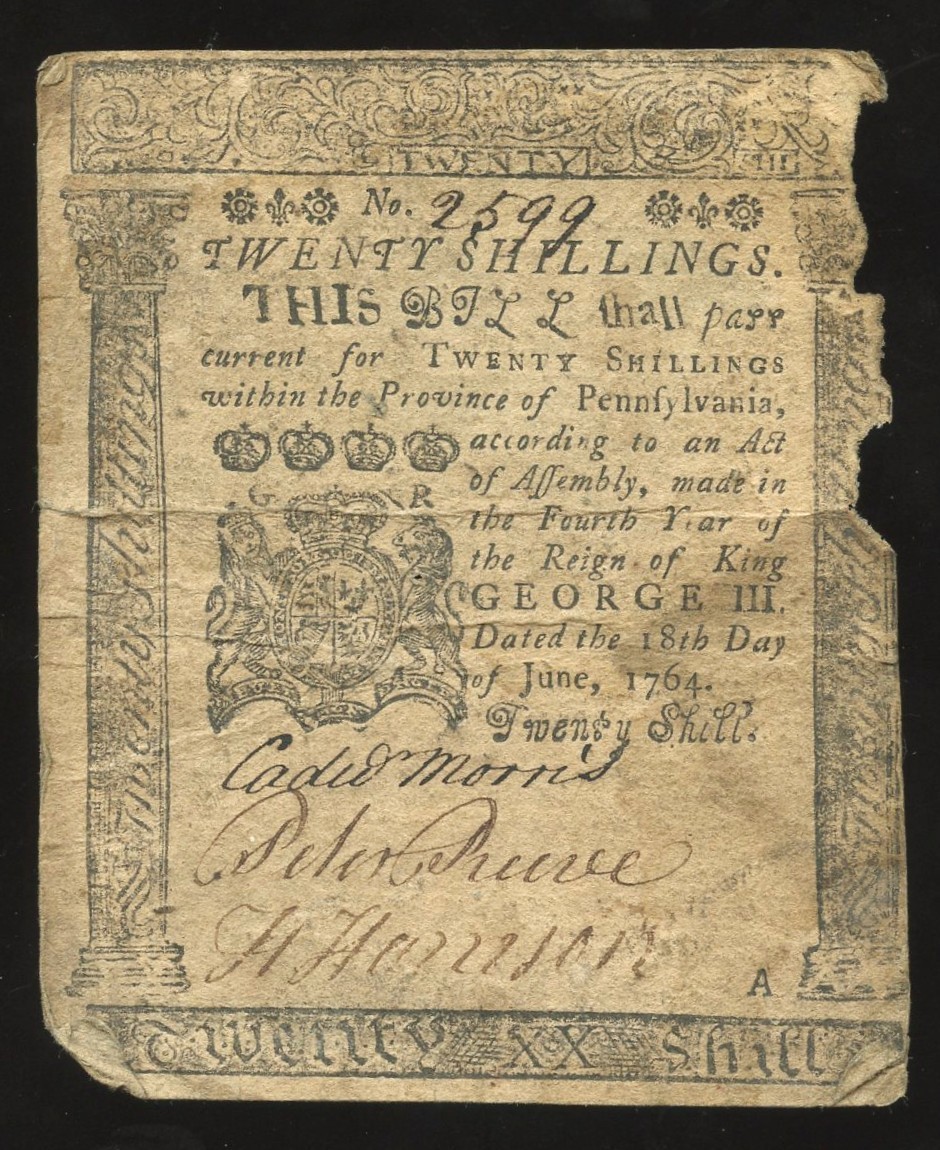 TWENTY
No. 2599
TWENTY SHILLINGS.
THIS BILL ſhall paſs
current for TWENTY SHILLINGS
within the Province of Pennſylvania,
according to an Act
of Aſſembly, made in
G R
the Fourth Year of
the Reign of King
GEORGE III.
Dated the 18th Day
of June, 1764.
Twenty Shill.
Twenty Shillings
Cadwr Morris
Peter Reeve
H Harrison
A
Twenty XX Shill